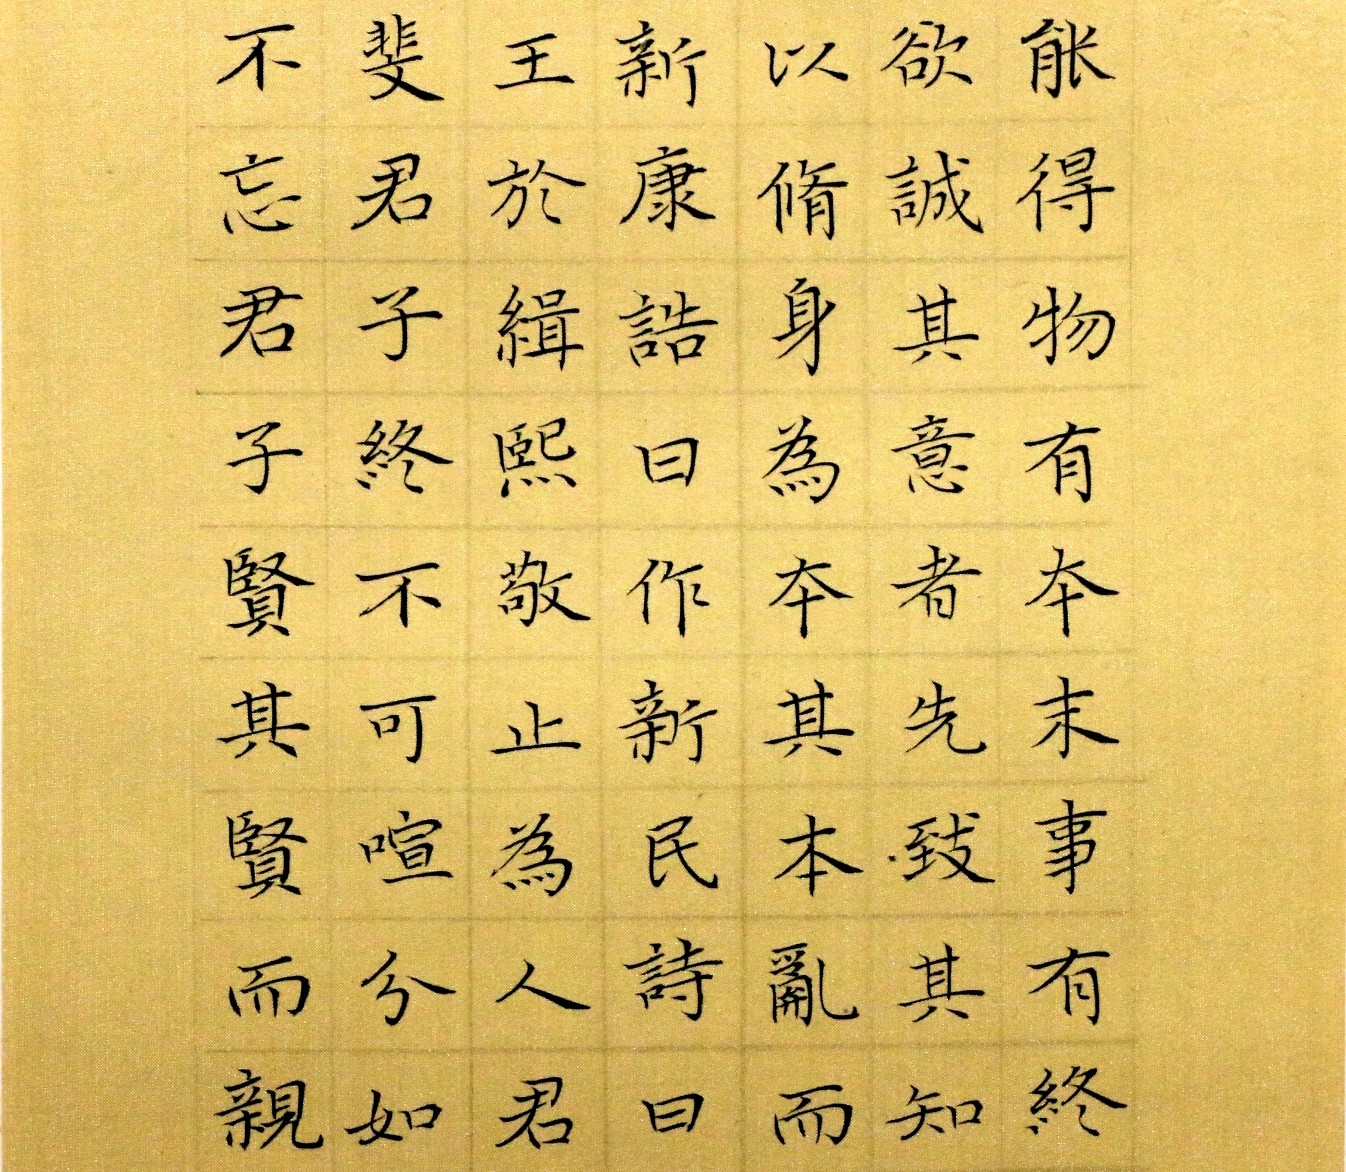 能得物有本末事有終
欲誠其意者先致其知
以脩身為本其本亂而
新康誥曰作新民詩曰
王於緝熙敬止為人君
斐君子終不可喧分如
不忘君子賢其賢而親